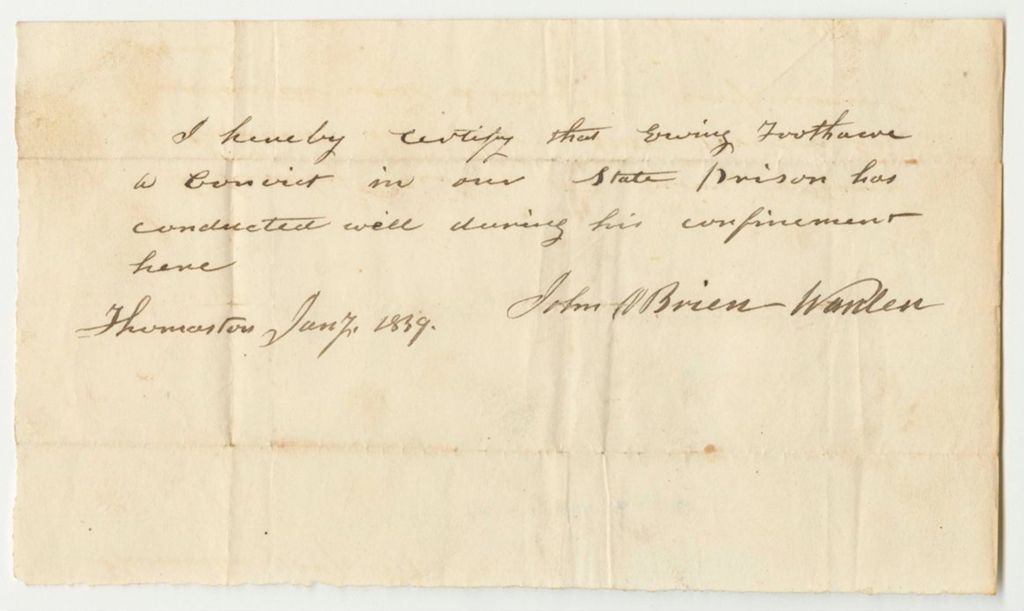 I hereby certify that Ewing Toothacre
a Convict in our State Prison has
conducted well during his confinement
here
John OBrien Warden
Thomaston Jany. 1839.